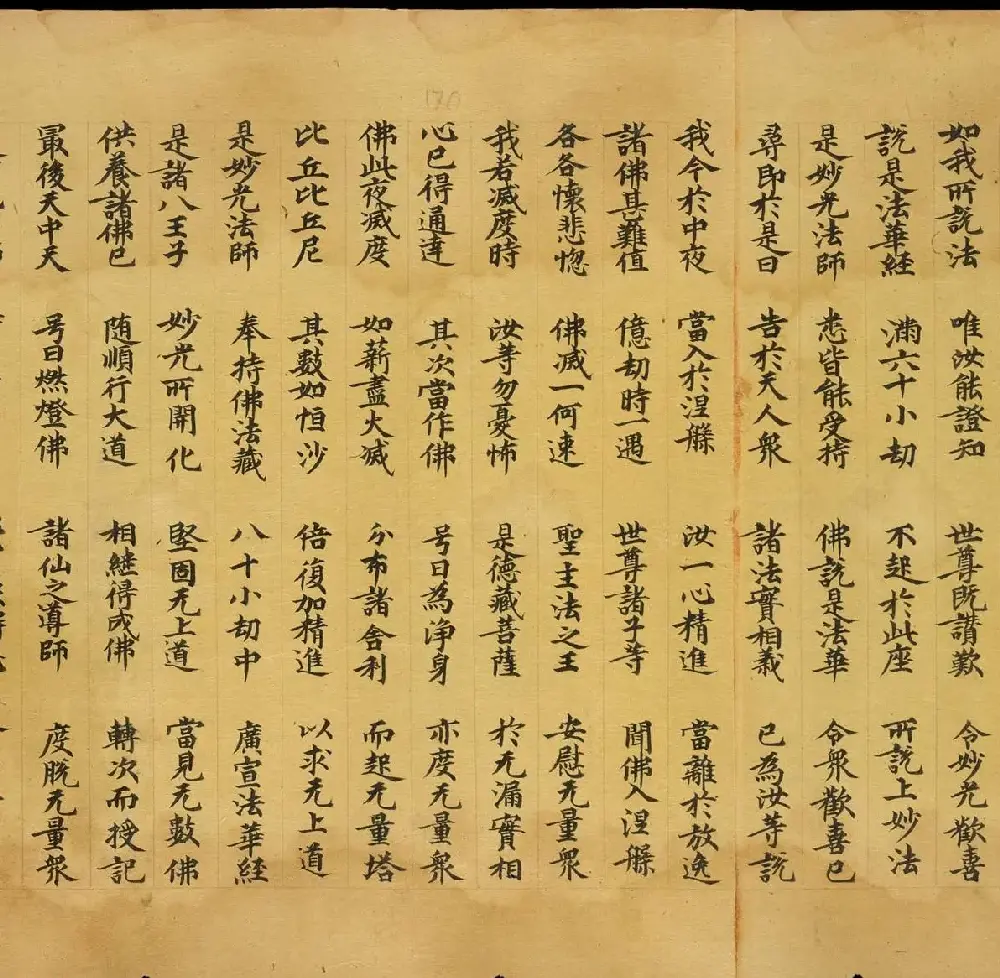 如我所説法 唯汝能證知 世尊既讃歎 令妙光歡喜
説是法華経 滿六十小劫 不起於此座 所説上妙法
是妙光法師 悉皆能受持 佛説是法華 令衆歡喜已
尋即於是日 告於天人衆 諸法實相義 已為汝等説
我今於中夜 當入於涅槃 汝一心精進 當離於放逸
諸佛甚難值 億劫時一遇 世尊諸子等 聞佛入涅槃
各各懷悲惱 佛滅一何速 聖主法之王 安慰无量衆
我若滅度時 汝等勿憂怖 是德藏菩薩 於无漏實相
心已得通達 其次當作佛 号曰為淨身 亦度无量衆
佛此夜滅度 如薪盡火滅 分布諸舍利 而起无量塔
比丘比丘尼 其數如恒沙 倍復加精進 以求无上道
是妙光法師 奉持佛法藏 八十小劫中 廣宣法華経
是諸八王子 妙光所開化 堅固无上道 當見无數佛
供養諸佛已 随順行大道 相継得成佛 轉次而授記
最後天中天 号曰燃燈佛 諸仙之導師 度脱无量衆